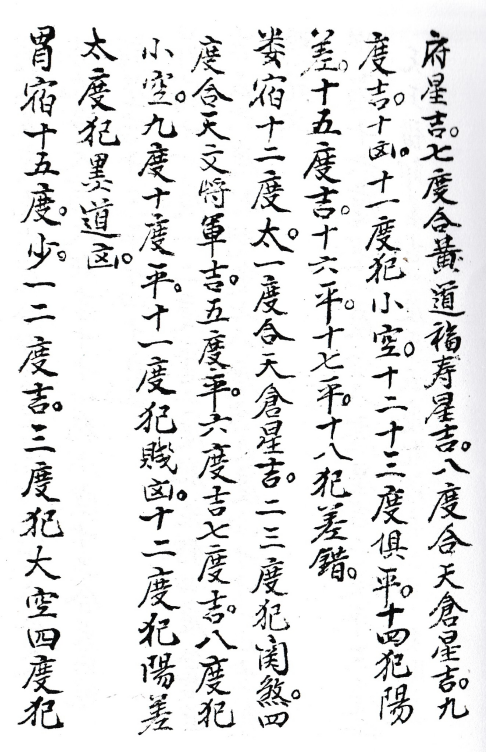 府星吉。七度合黄道福寿星吉。八度合天倉星吉。九
度吉。十凶。十一度犯小空。十二十三度俱平。十四犯陽
差。十五度吉。十六平。十七平。十八犯差錯。
娄宿十二度太。一度合天倉星吉。二三度犯関煞。四
度合天文将軍吉。五度平。六度吉七度吉。八度犯
小空。九度十度平。十一度犯贱凶。十二度犯陽差
太度犯黒道凶。
胃宿十五度。少。一二度吉。三度犯大空四度犯